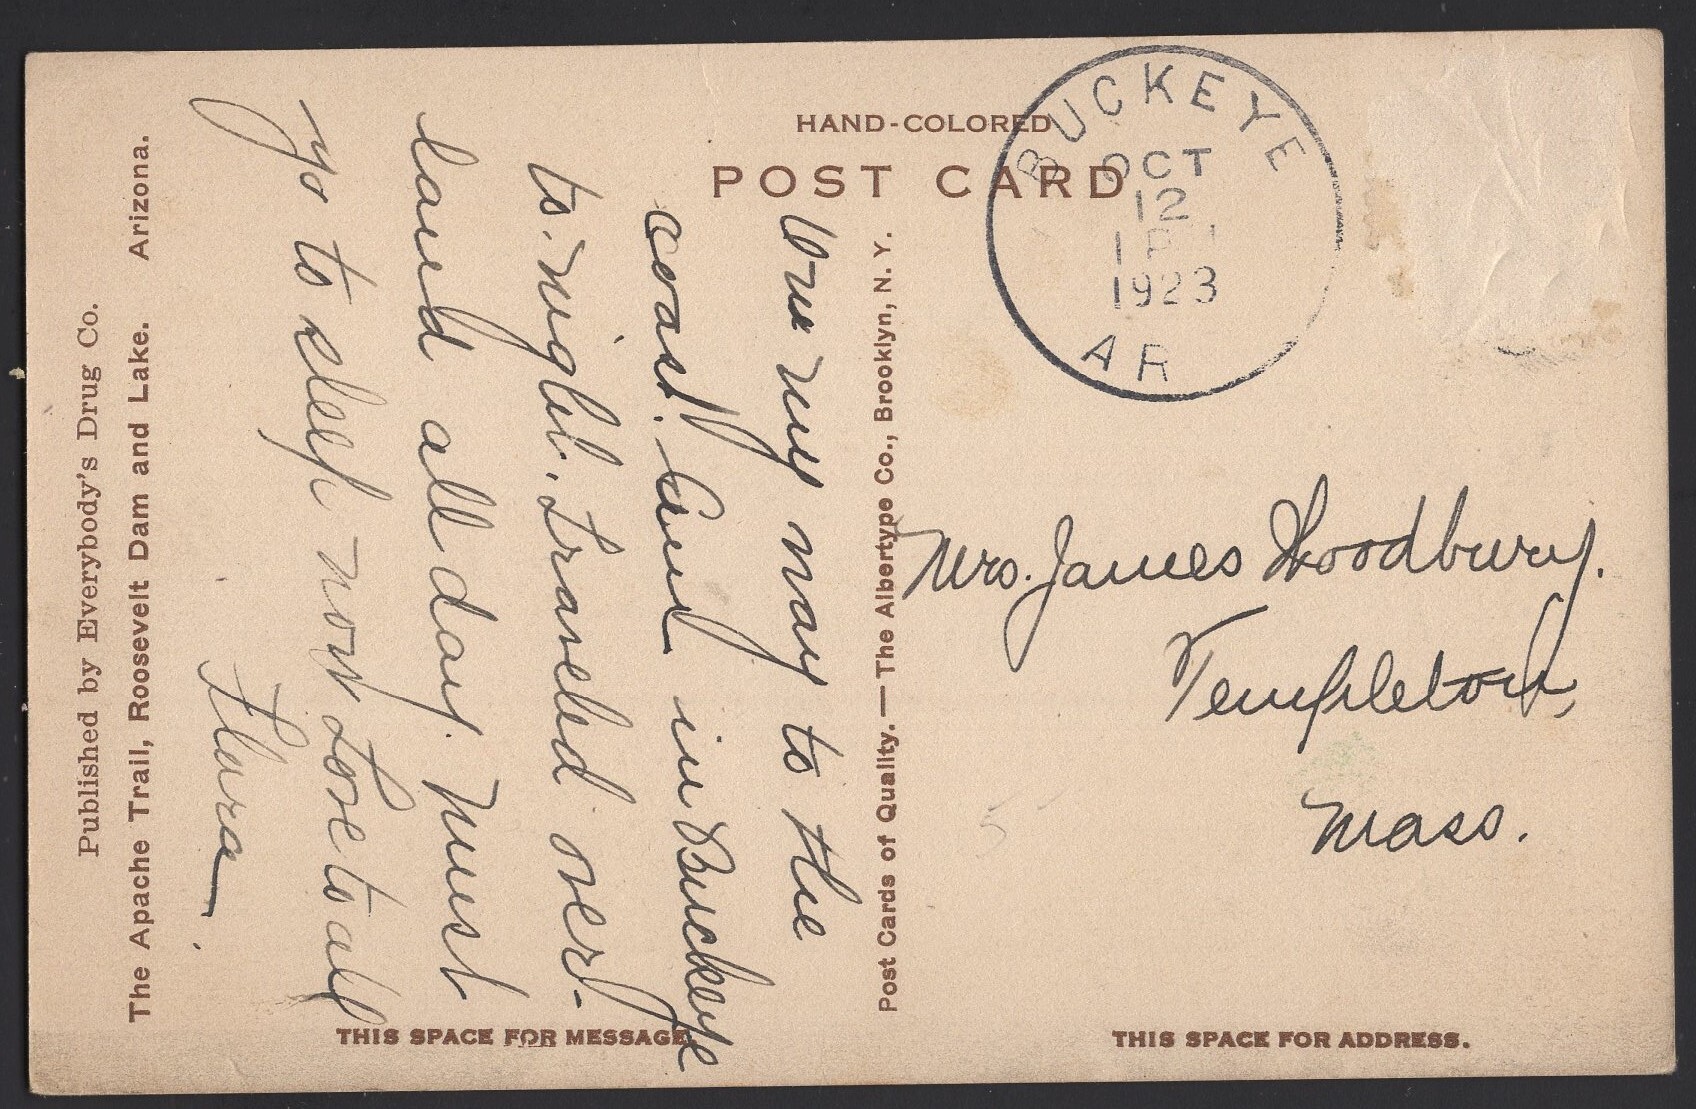 HAND-COLORED
POST CARD
BUCKEYE
OCT
12
1923
AR
On my way to the
coast. And in Buckeye
to-night. Traveled over-
land all day. Must
go to sleep now Love to all
Flora
Mrs. James Woodbury.
Templeton,
Mass.
Post Cards of Quality.—The Albertype Co., Brooklyn, N. Y.
The Apache Trail, Roosevelt Dam and Lake. Arizona.
Published by Everybody's Drug Co.
THIS SPACE FOR MESSAGE
THIS SPACE FOR ADDRESS.